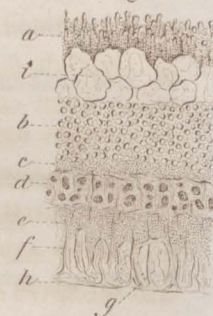 a
i
b
c
d
e
f
h
g